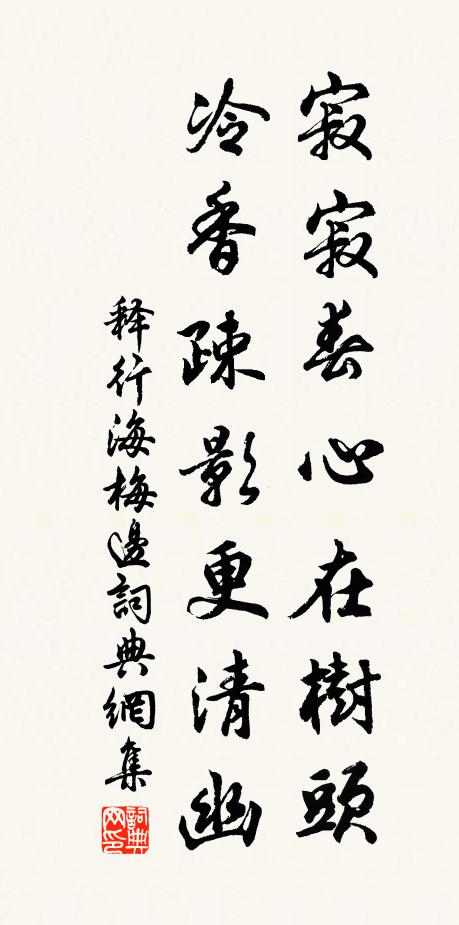 寂寂春心在樹頭
冷香疎影更清幽
释行海梅邊詞典網集
詞典网印